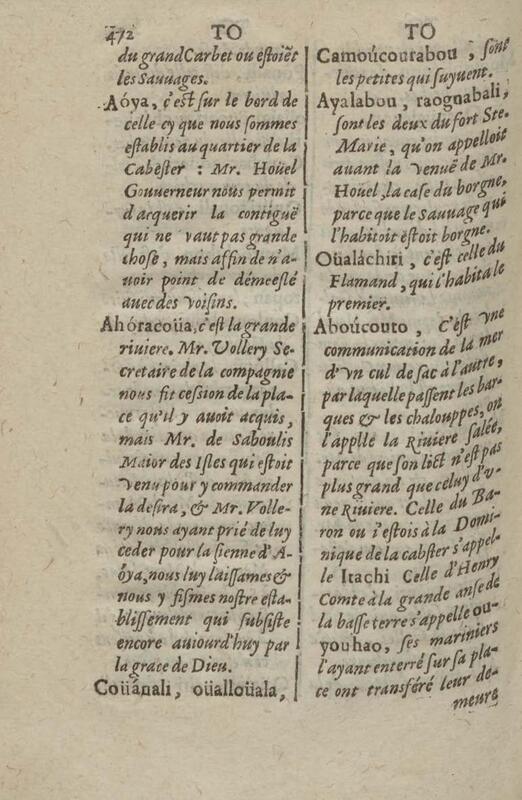 472 TO TO
du grand Carbet ou estoiẽt
les Sauuages.
Aóya, c'est sur le bord de
celle cy que nous sommes
establis au quartier de la
Cabester : Mr. Hoüel
Gouuerneur nous permit
d'acquerir la contiguë
qui ne vaut pas grande
chose, mais affin de n'a-
uoir point de démeeslé
auec des voisins.
Ahóracoüa, c'est la grande
riuiere. Mr. Vollery Se-
cretaire de la compagnie
nous fit cession de la pla-
ce qu'il y auoit acquis,
mais Mr. de Saboulis
Maior des Isles qui estoit
venu pour y commander
la desira, & Mr. Volle-
ry nous ayant prié de luy
ceder pour la sienne d'A-
óya, nous luy laissames &
nous y fismes nostre esta-
blissement qui subsiste
encore auiourd'huy par
la grace de Dieu.
Coüánali, oüalloüala,
Camoúcourabou, sont
les petites qui suyuent.
Ayalabou, raognabali,
sont les deux du fort Ste.
Marie, qu'on appelloit
auant la venuë de Mr.
Hoüel, la case du borgne,
parce que le Sauuage qui
l'habitoit estoit borgne.
Oüaláchiri, c'est celle du
Flamand, qui l'habita le
premier.
Aboúcouto, C'est vne
communication de la mer
d'vn cul de sac à l'autre,
par laquelle passent les bar-
ques & les chalouppes, on
l'applle la Riuiere salée,
parce que son lict n'est pas
plus grand que celuy d'v-
ne Riüiere. Celle du Ba-
ron ou i'estois à la Domi-
nique de la cabster s'appel-
le Itachi Celle d'Henry
Comte à la grande anse de
la basse terre s'appelle ou-
youhao, ses mariniers
l'ayant enterré sur sa pla-
ce ont transféré leur de-
meure